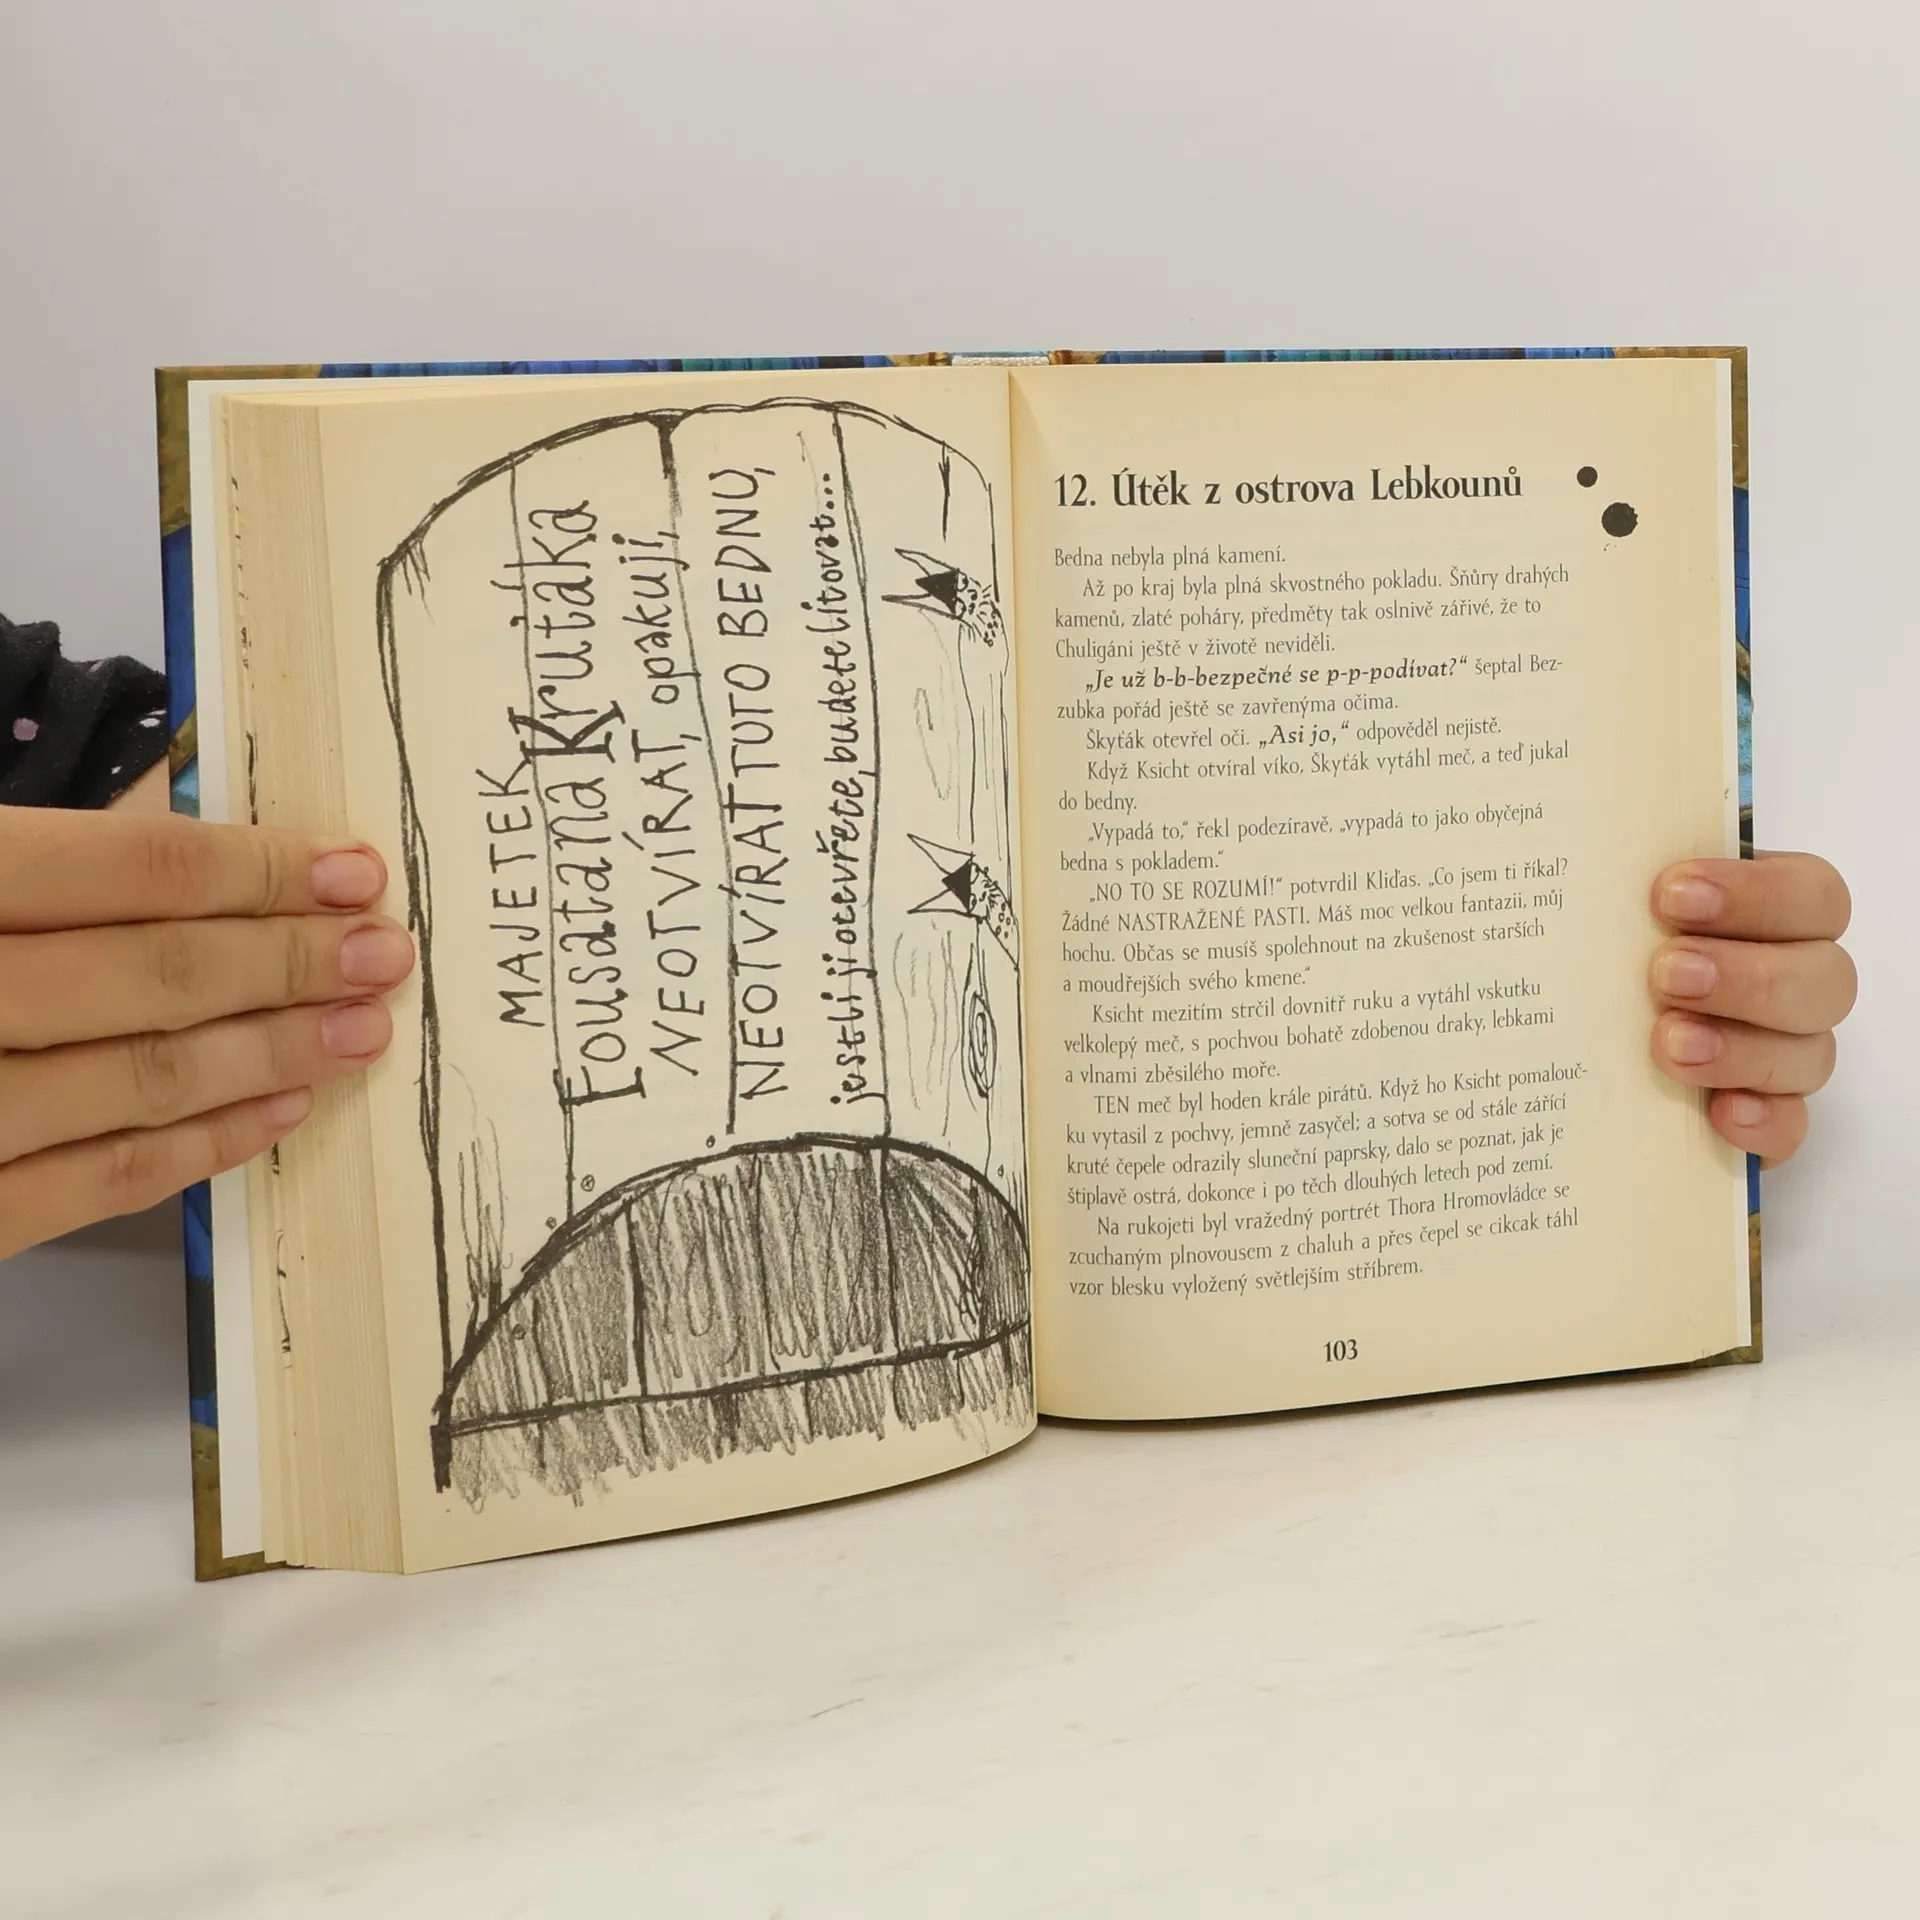 MAJETEK
Fousatana Krutáka
NEOTVÍRAT, opakuji,
NEOTVÍRAT TUTO BEDNU,
jestli ji otevřete, budete litovat...
12. Útěk z ostrova Lebkounů
Bedna nebyla plná kamení.
Až po kraj byla plná skvostného pokladu. Šňůry drahých
kamenů, zlaté poháry, předměty tak oslnivě zářivé, že to
Chuligáni ještě v životě neviděli.
„Je už b-b-bezpečné se p-p-podívat?“ šeptal Bez-
zubka pořád ještě se zavřenýma očima.
Škyťák otevřel oči. „Asi jo,“ odpověděl nejistě.
Když Ksicht otvíral víko, Škyťák vytáhl meč, a teď jukal
do bedny.
„Vypadá to,“ řekl podezíravě, „vypadá to jako obyčejná
bedna s pokladem.“
„NO TO SE ROZUMÍ!“ potvrdil Kliďas. „Co jsem ti říkal?
Žádné NASTRAŽENÉ PASTI. Máš moc velkou fantazii, můj
hochu. Občas se musíš spolehnout na zkušenost starších
a moudřejších svého kmene.“
Ksicht mezitím strčil dovnitř ruku a vytáhl vskutku
velkolepý meč, s pochvou bohatě zdobenou draky, lebkami
a vlnami zběsilého moře.
TEN meč byl hoden krále pirátů. Když ho Ksicht pomalouč-
ku vytasil z pochvy, jemně zasyčel; a sotva se od stále zářící
kruté čepele odrazily sluneční paprsky, dalo se poznat, jak je
štiplavě ostrá, dokonce i po těch dlouhých letech pod zemí.
Na rukojeti byl vražedný portrét Thora Hromovládce se
zcuchaným plnovousem z chaluh a přes čepel se cikcak táhl
vzor blesku vyložený světlejším stříbrem.
103